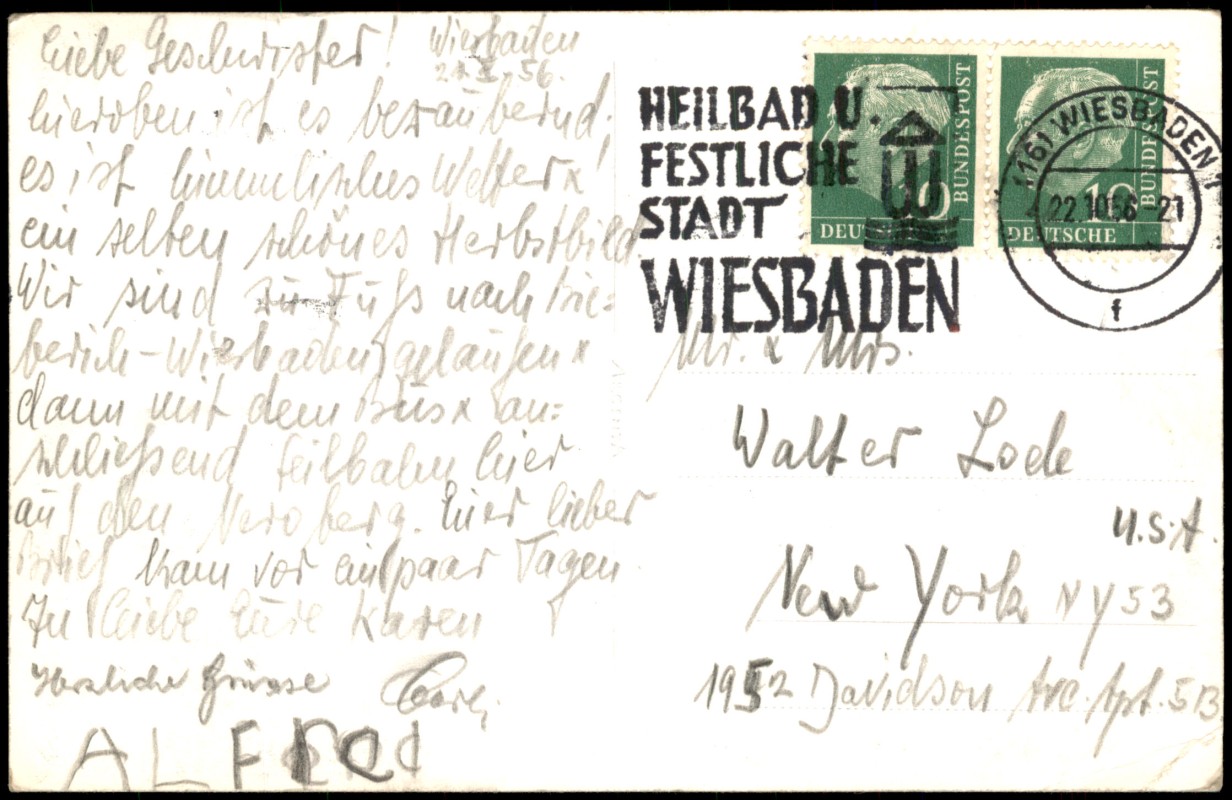 Liebe Geschwister! Wiesbaden
21. X. 56.
hieroben ist es bezaubernd.
es ist himmlisches Wetter x
ein selten schönes Herbstbild
Wir sind zu Fuß nach Bie=
berich-Wiesbaden gelaufen x
dann mit dem Bus x an=
schließend Seilbahn hier
auf den Neroberg. Euer lieber
Brief kam vor ein paar Tagen
In Liebe Eure Karen
Herzliche Grüsse
ALFRed
HEILBAD U.
FESTLICHE
STADT
WIESBADEN
10
BUNDESPOST
DEUTSCHE
10
BUNDESPOST
DEUTSCHE
(16) WIESBADEN
22.10.56-21
f
Mr. x Mrs.
Walter Lode
U.S.A.
New York NY 53
1952 Davidson Ave. Apt. 5B